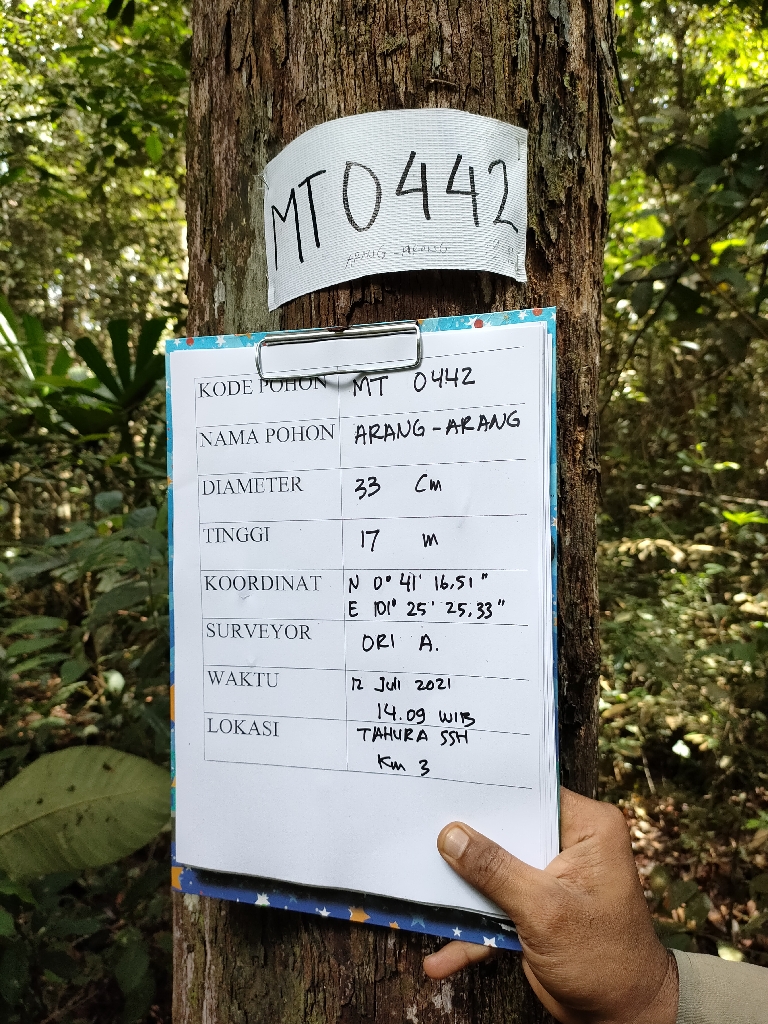 MT 0442
ARANG - ARANG
KODE POHON MT 0442
NAMA POHON ARANG - ARANG
DIAMETER 33 Cm
TINGGI 17 m
KOORDINAT N 0° 41' 16.51"
E 101° 25' 25.33"
SURVEYOR ORI A.
WAKTU 12 Juli 2021
14.09 WIB
LOKASI TAHURA SSH
Km 3